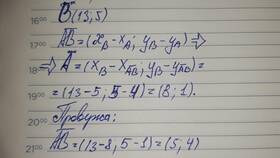 B(13,5)
16⁰⁰
17⁰⁰ A̅B̅=(x_B-x_A; y_B-y_A)⇒
18⁰⁰ ⇒A̅=(x_B-x_A̅B̅; y_B-y_A̅B̅)=
19⁰⁰ =(13-5; 5-4)=(8; 1).
20⁰⁰ Проверка:
21⁰⁰ A̅B̅=(13-8, 5-1)=(5, 4)